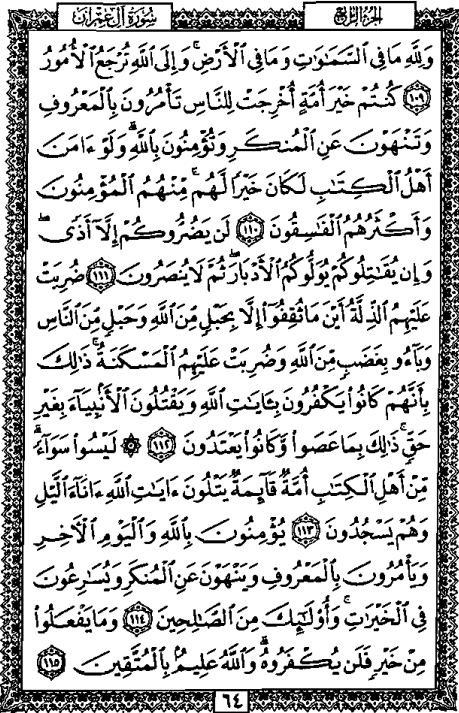 سُورَةُ آلِ عِمْرَان
الجُزءُ الرَّابِعُ
وَلِلَّهِ مَا فِي السَّمَٰوَٰتِ وَمَا فِي الْأَرْضِ ۚ وَإِلَى اللَّهِ تُرْجَعُ الْأُمُورُ
﴿١٠٩﴾ كُنتُمْ خَيْرَ أُمَّةٍ أُخْرِجَتْ لِلنَّاسِ تَأْمُرُونَ بِالْمَعْرُوفِ
وَتَنْهَوْنَ عَنِ الْمُنكَرِ وَتُؤْمِنُونَ بِاللَّهِ ۗ وَلَوْ ءَامَنَ
أَهْلُ الْكِتَٰبِ لَكَانَ خَيْرًا لَّهُم ۚ مِّنْهُمُ الْمُؤْمِنُونَ
وَأَكْثَرُهُمُ الْفَٰسِقُونَ ﴿١١٠﴾ لَن يَضُرُّوكُمْ إِلَّا أَذًى ۖ
وَإِن يُقَٰتِلُوكُمْ يُوَلُّوكُمُ الْأَدْبَارَ ثُمَّ لَا يُنصَرُونَ ﴿١١١﴾ ضُرِبَتْ
عَلَيْهِمُ الذِّلَّةُ أَيْنَ مَا ثُقِفُوٓا إِلَّا بِحَبْلٍ مِّنَ اللَّهِ وَحَبْلٍ مِّنَ النَّاسِ
وَبَآءُو بِغَضَبٍ مِّنَ اللَّهِ وَضُرِبَتْ عَلَيْهِمُ الْمَسْكَنَةُ ۚ ذَٰلِكَ
بِأَنَّهُمْ كَانُوا يَكْفُرُونَ بِـَٔايَٰتِ اللَّهِ وَيَقْتُلُونَ الْأَنۢبِيَآءَ بِغَيْرِ
حَقٍّ ۚ ذَٰلِكَ بِمَا عَصَوا وَّكَانُوا يَعْتَدُونَ ﴿١١٢﴾ ۞ لَيْسُوا سَوَآءً ۗ
مِّنْ أَهْلِ الْكِتَٰبِ أُمَّةٌ قَآئِمَةٌ يَتْلُونَ ءَايَٰتِ اللَّهِ ءَانَآءَ الَّيْلِ
وَهُمْ يَسْجُدُونَ ﴿١١٣﴾ يُؤْمِنُونَ بِاللَّهِ وَالْيَوْمِ الْأَخِرِ
وَيَأْمُرُونَ بِالْمَعْرُوفِ وَيَنْهَوْنَ عَنِ الْمُنكَرِ وَيُسَٰرِعُونَ
فِي الْخَيْرَٰتِ ۖ وَأُولَٰٓئِكَ مِنَ الصَّٰلِحِينَ ﴿١١٤﴾ وَمَا يَفْعَلُوا
مِنْ خَيْرٍ فَلَن يُكْفَرُوهُ ۗ وَاللَّهُ عَلِيمٌۢ بِالْمُتَّقِينَ ﴿١١٥﴾
٦٤